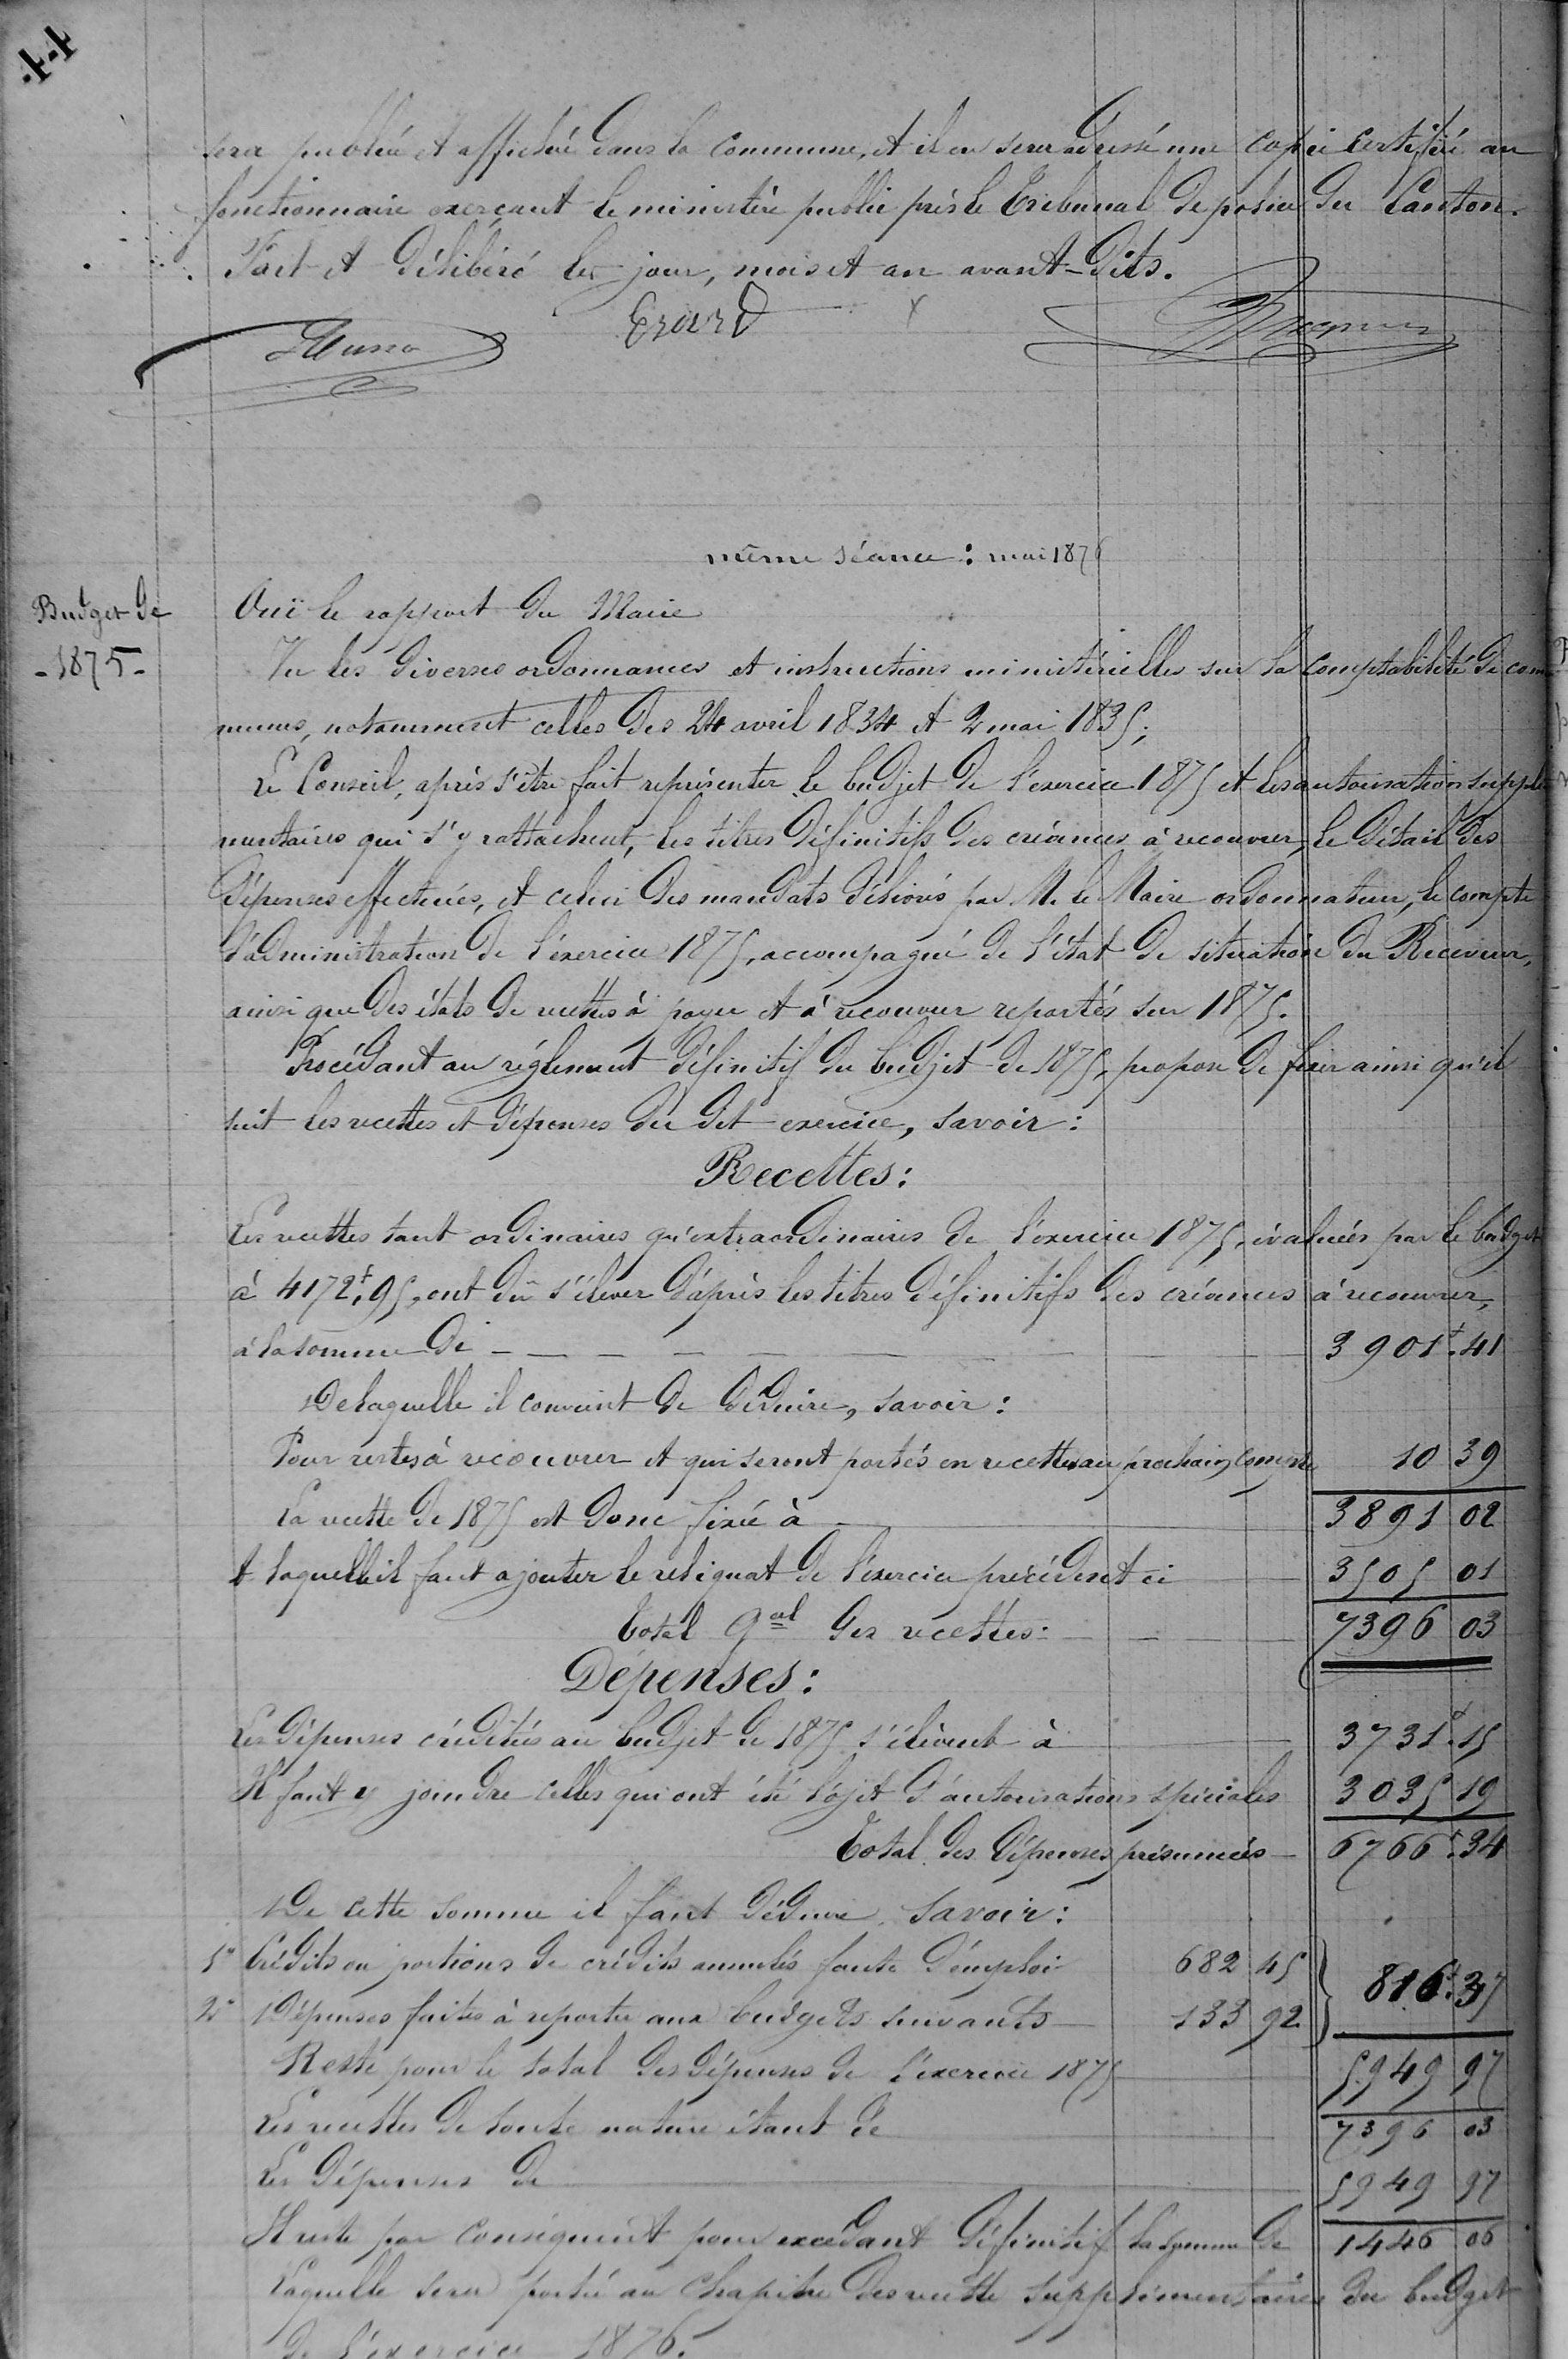 44
sera publiée et affichée dans la commune, et il en sera adressé une copie certifiée au
fonctionnaire exerçant le ministère public près le Tribunal de police du Canton.
Fait et délibéré les jour, mois et an avant-dits.
Erard
même séance : mai 1876
Budget de
- 1875 -
Ouï le rapport du Maire
Vu les diverses ordonnances et instructions ministérielles sur la comptabilité de com
munes, notamment celles des 24 avril 1834 et 2 mai 1835;
Le Conseil, après s'être fait représenter le budjet de l'exercice 1875 et les autorisations supplé
mentaires qui s'y rattachent, les titres définitifs des créances à recouvrer, le détail des
dépenses effectuées, et celui des mandats délivrés par M. le Maire ordonnateur, le compte
d'administration de l'exercice 1875, accompagné de l'état de situation du Receveur,
ainsi que des états de restes à payer et à recouvrer reportés sur 1875.
Procédant au réglement définitif du budjet de 1875, propose de fixer ainsi qu'il
suit les recettes et dépenses du dit exercice, savoir :
Recettes :
Les recettes tant ordinaires qu'extraordinaires de l'exercice 1875, évaluées par le budget
à 4172f,95, ont dû s'élever d'après les titres définitifs des créances à recouvrer,
à la somme de - - - 3901f.41
De laquelle il convient de déduire, savoir :
Pour restes à recouvrer et qui seront portés en recettes au prochain compte 10 39
La recette de 1875 est donc fixée à 3891 02
A laquelle il faut ajouter le reliquat de l'exercice précédent ci 3505 01
Total gal des recettes : 7396 03
Dépenses :
Les dépenses créditées au budjet de 1875 s'élèvent à 3731f.15
Il faut y joindre celles qui ont été l'ojet d'autorisations spéciales 3035 19
Total des dépenses présumées 6766f.34
De cette somme il faut déduire, savoir :
1° Crédits ou portions de crédits annulés faute d'emploi 682 45 } 816f.37
2° Dépenses faites à reporter aux budgets suivants 133 92
Reste pour le total des dépenses de l'exercice 1875 5949 97
Les recettes de toute nature étant de 7396 03
Les dépenses de 5949 97
Il reste par conséquent pour excédant définitif la somme de 1446 06
Laquelle sera portée au chapitre des recette supplémentaires du budget
de l'exercice 1876.